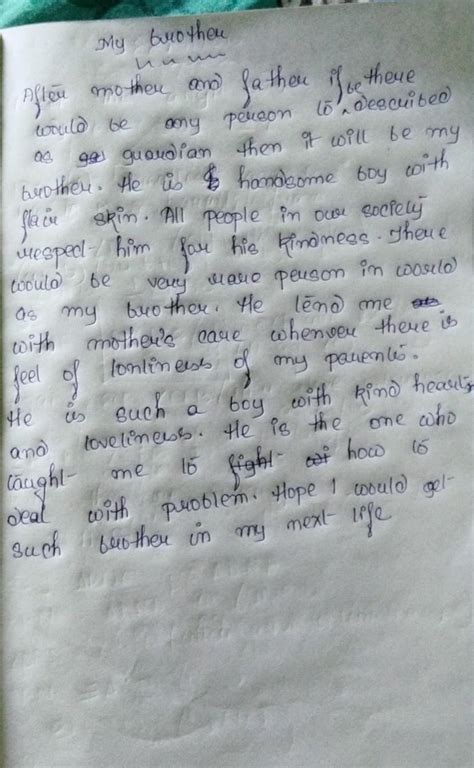 My brother
After mother and father if there
would be any person to be described
as guardian then it will be my
brother. He is handsome boy with
flair skin. All people in our society
respect him for his kindness. There
would be very rare person in world
as my brother. He lend me
with mother's care whenver there is
feel of lonliness of my parents.
He is such a boy with kind hearty
and loveliness. He is the one who
taught me to fight how to
deal with problem. Hope I would get
such brother in my next life